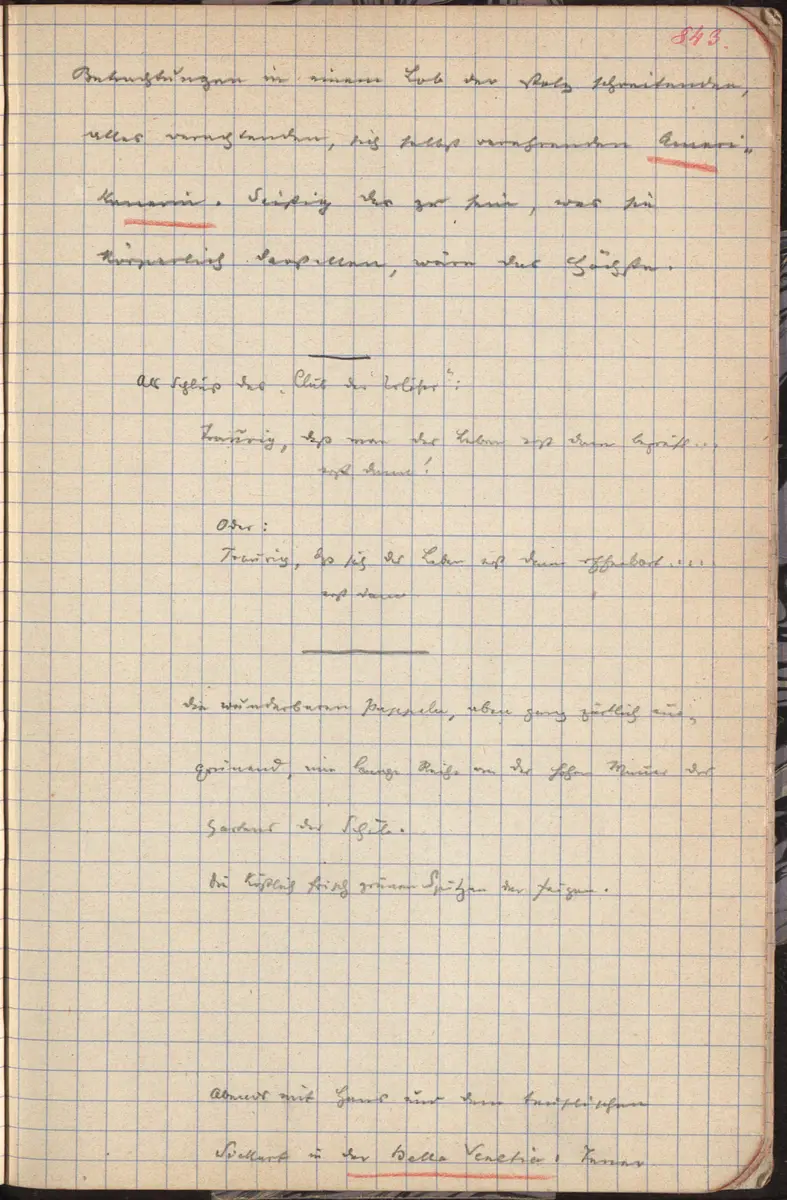 843.
Betrachtungen in einem Lob der stolz schreitenden,
alles verachtenden, sich selbst verehrenden Ameri-
kanerin. Geistig das zu sein, was sie
körperlich darstellen, wäre das Höchste.
Als Schluß des „Club der Erlöser“:
Traurig, daß man das Leben erst dann begreift...
erst dann!
Oder:
Traurig, daß sich das Leben erst dann offenbart....
erst dann
Die wunderbaren Pappeln, oben ganz zärtlich aus-
grünend, eine lange Reihe an der hohen Mauer des
Gartens der Schule.
Die köstlich frisch grünen Spitzen der Feigen.
Abends mit Hans und dem teuflischen
in der Bella Venetia: